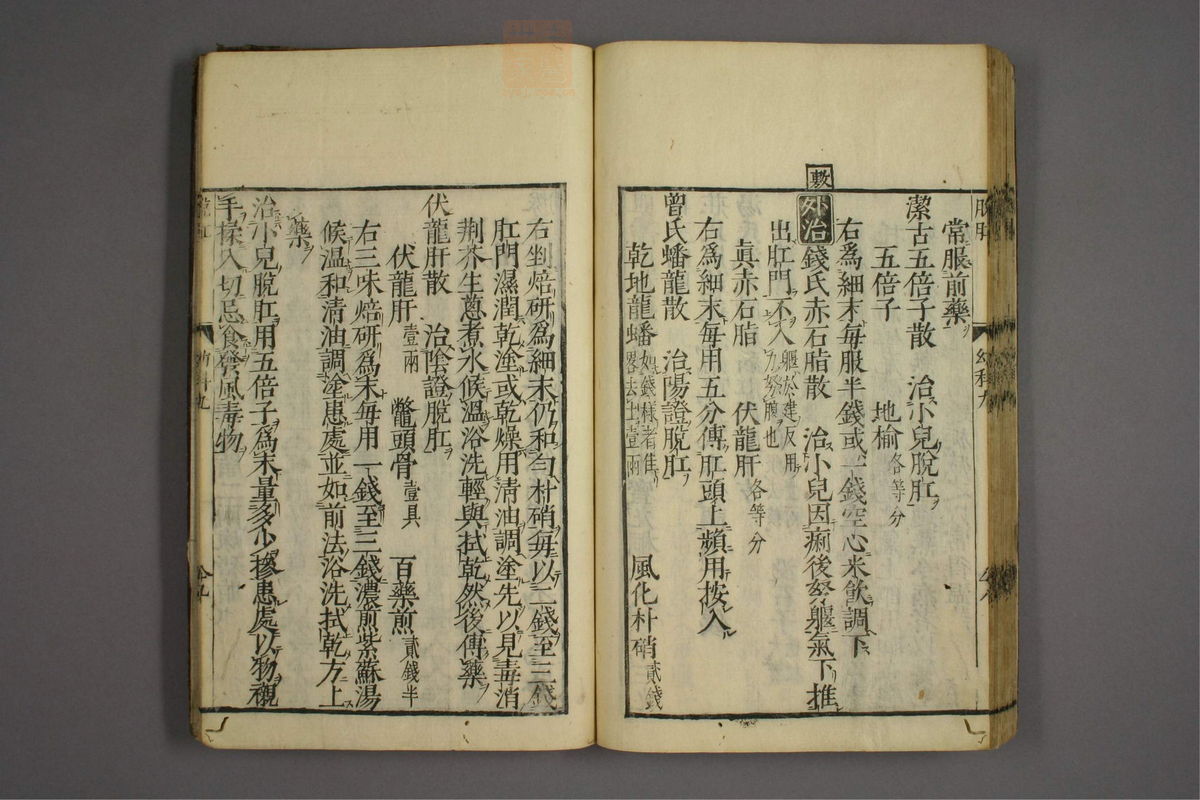 常服前藥
潔古五倍子散　治小兒脫肛
五倍子　地榆各等分
右爲細末每服半錢或一錢空心米飲調下
敷
外治
錢氏赤石脂散　治小兒因痢後努軀氣下推
出肛門不入軀於建反用力努腹也
眞赤石脂　伏龍肝各等分
右爲細末每用五分傅肛頭上頻用按入
曾氏蟠龍散　治陽證脫肛
乾地龍蟠如錢樣者佳畧去土壹兩　風化朴硝貳錢
幼科九
右剉焙研爲細末仍和勻朴硝每以二錢至三錢
肛門濕潤乾塗或乾燥用清油調塗先以見毒消
荆芥生葱煮水候溫浴洗輕與拭乾然後傅藥
伏龍肝散　治陰證脫肛
伏龍肝壹兩　鱉頭骨壹具　百藥煎貳錢半
右三味焙研爲末每用一錢至三錢濃煎紫蘇湯
候溫和清油調塗患處並如前法浴洗拭乾方上
藥
治小兒脫肛用五倍子爲末量多少摻患處以物襯
手揉入切忌食發風毒物